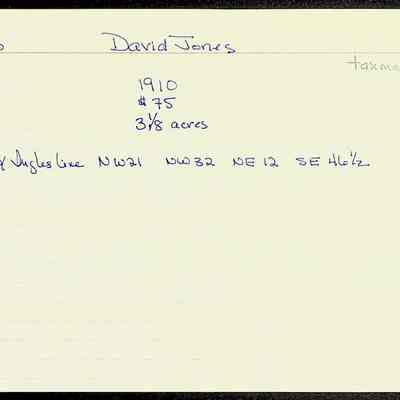 David Jones
1910
$75
3 1/8 acres
Ingles Line NW21 NW32 NE 12 SE 46 1/2